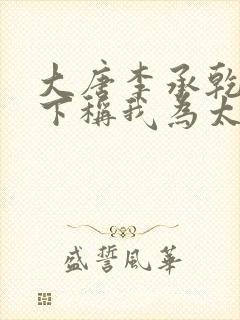 大唐李承乾
下稱我為太
盛誓風華